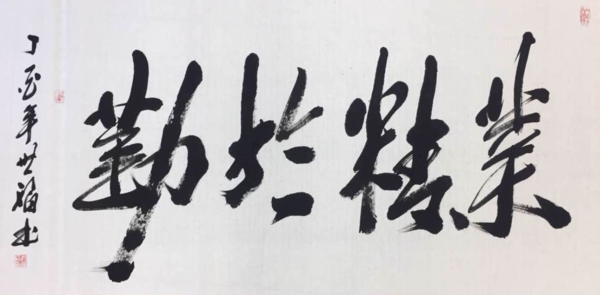 業精於勤
丁酉年世福书